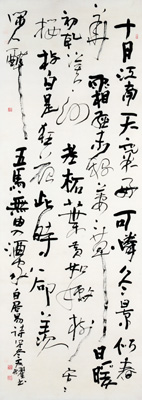 十月江南天氣好可憐冬景似春
華霜輕未殺萋萋草日暖
初乾漠漠沙老柘葉黃如嫩樹寒
櫻枝白是狂花此時卻羨
閒人醉五馬無由入酒家白居易詩早冬書